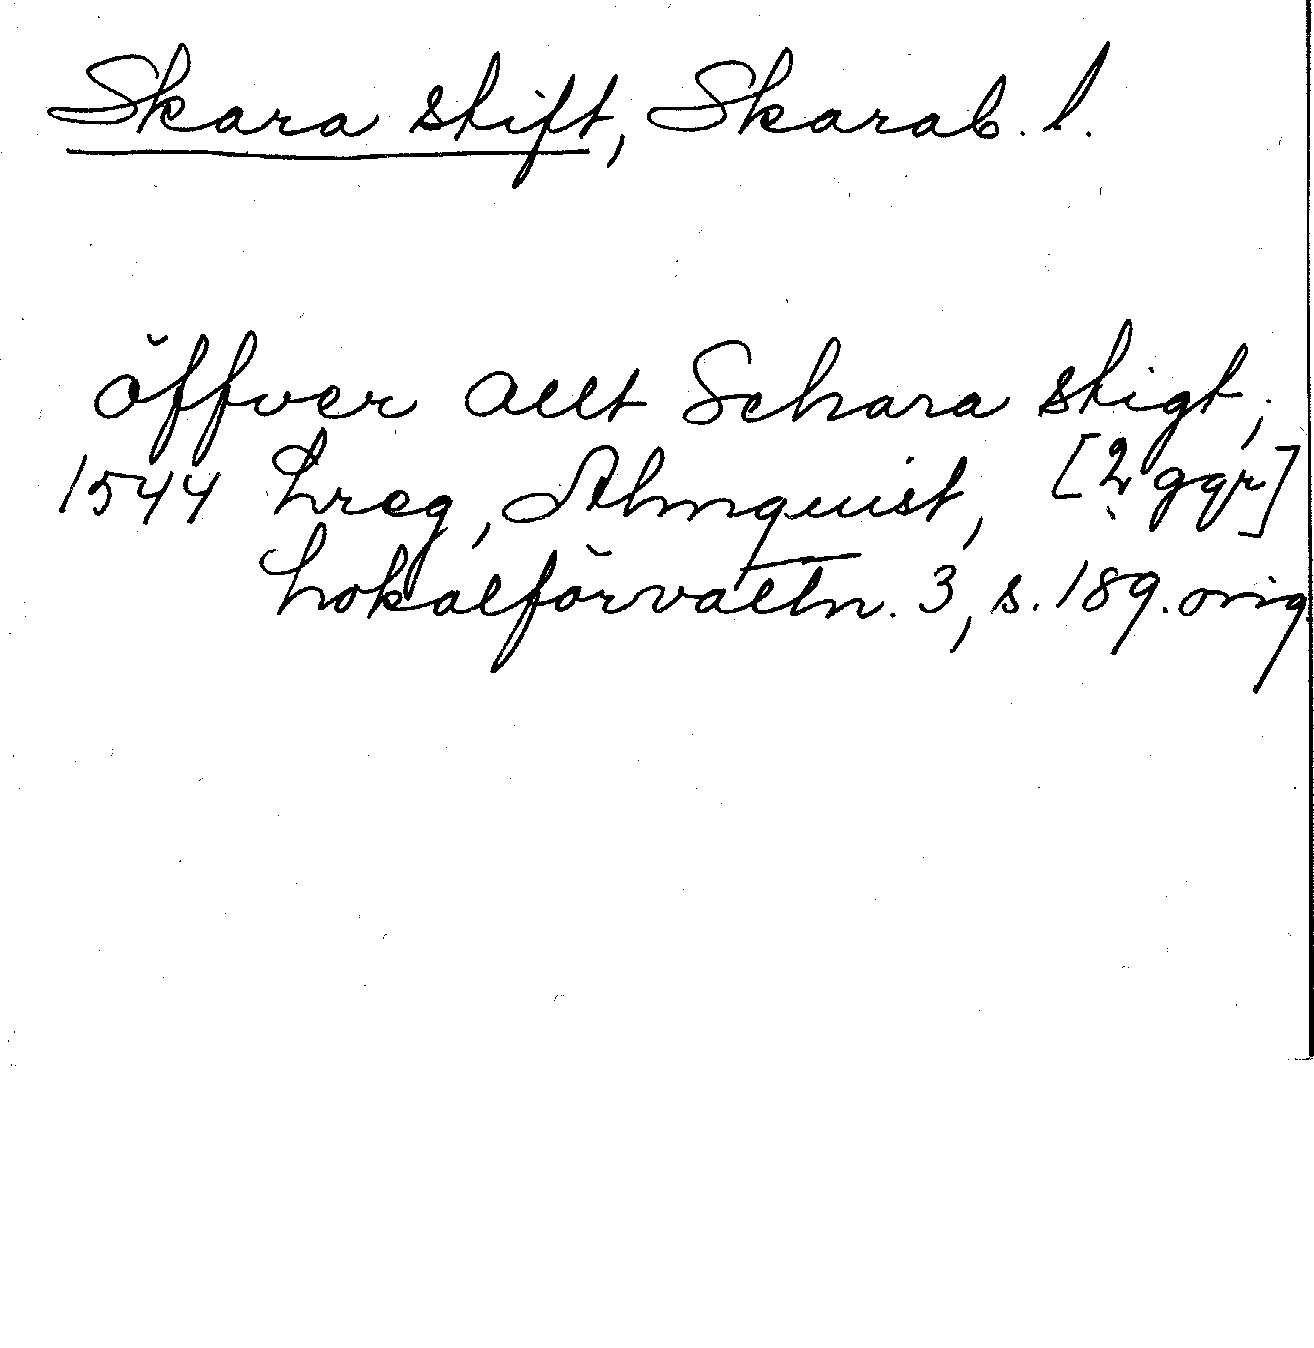 Skara stift, Skarab. l.
öffver allt Schara stigt,
1544 Lreg, Almquist, [2 ggr]
Lokalförvaltn. 3, s. 189. orig.